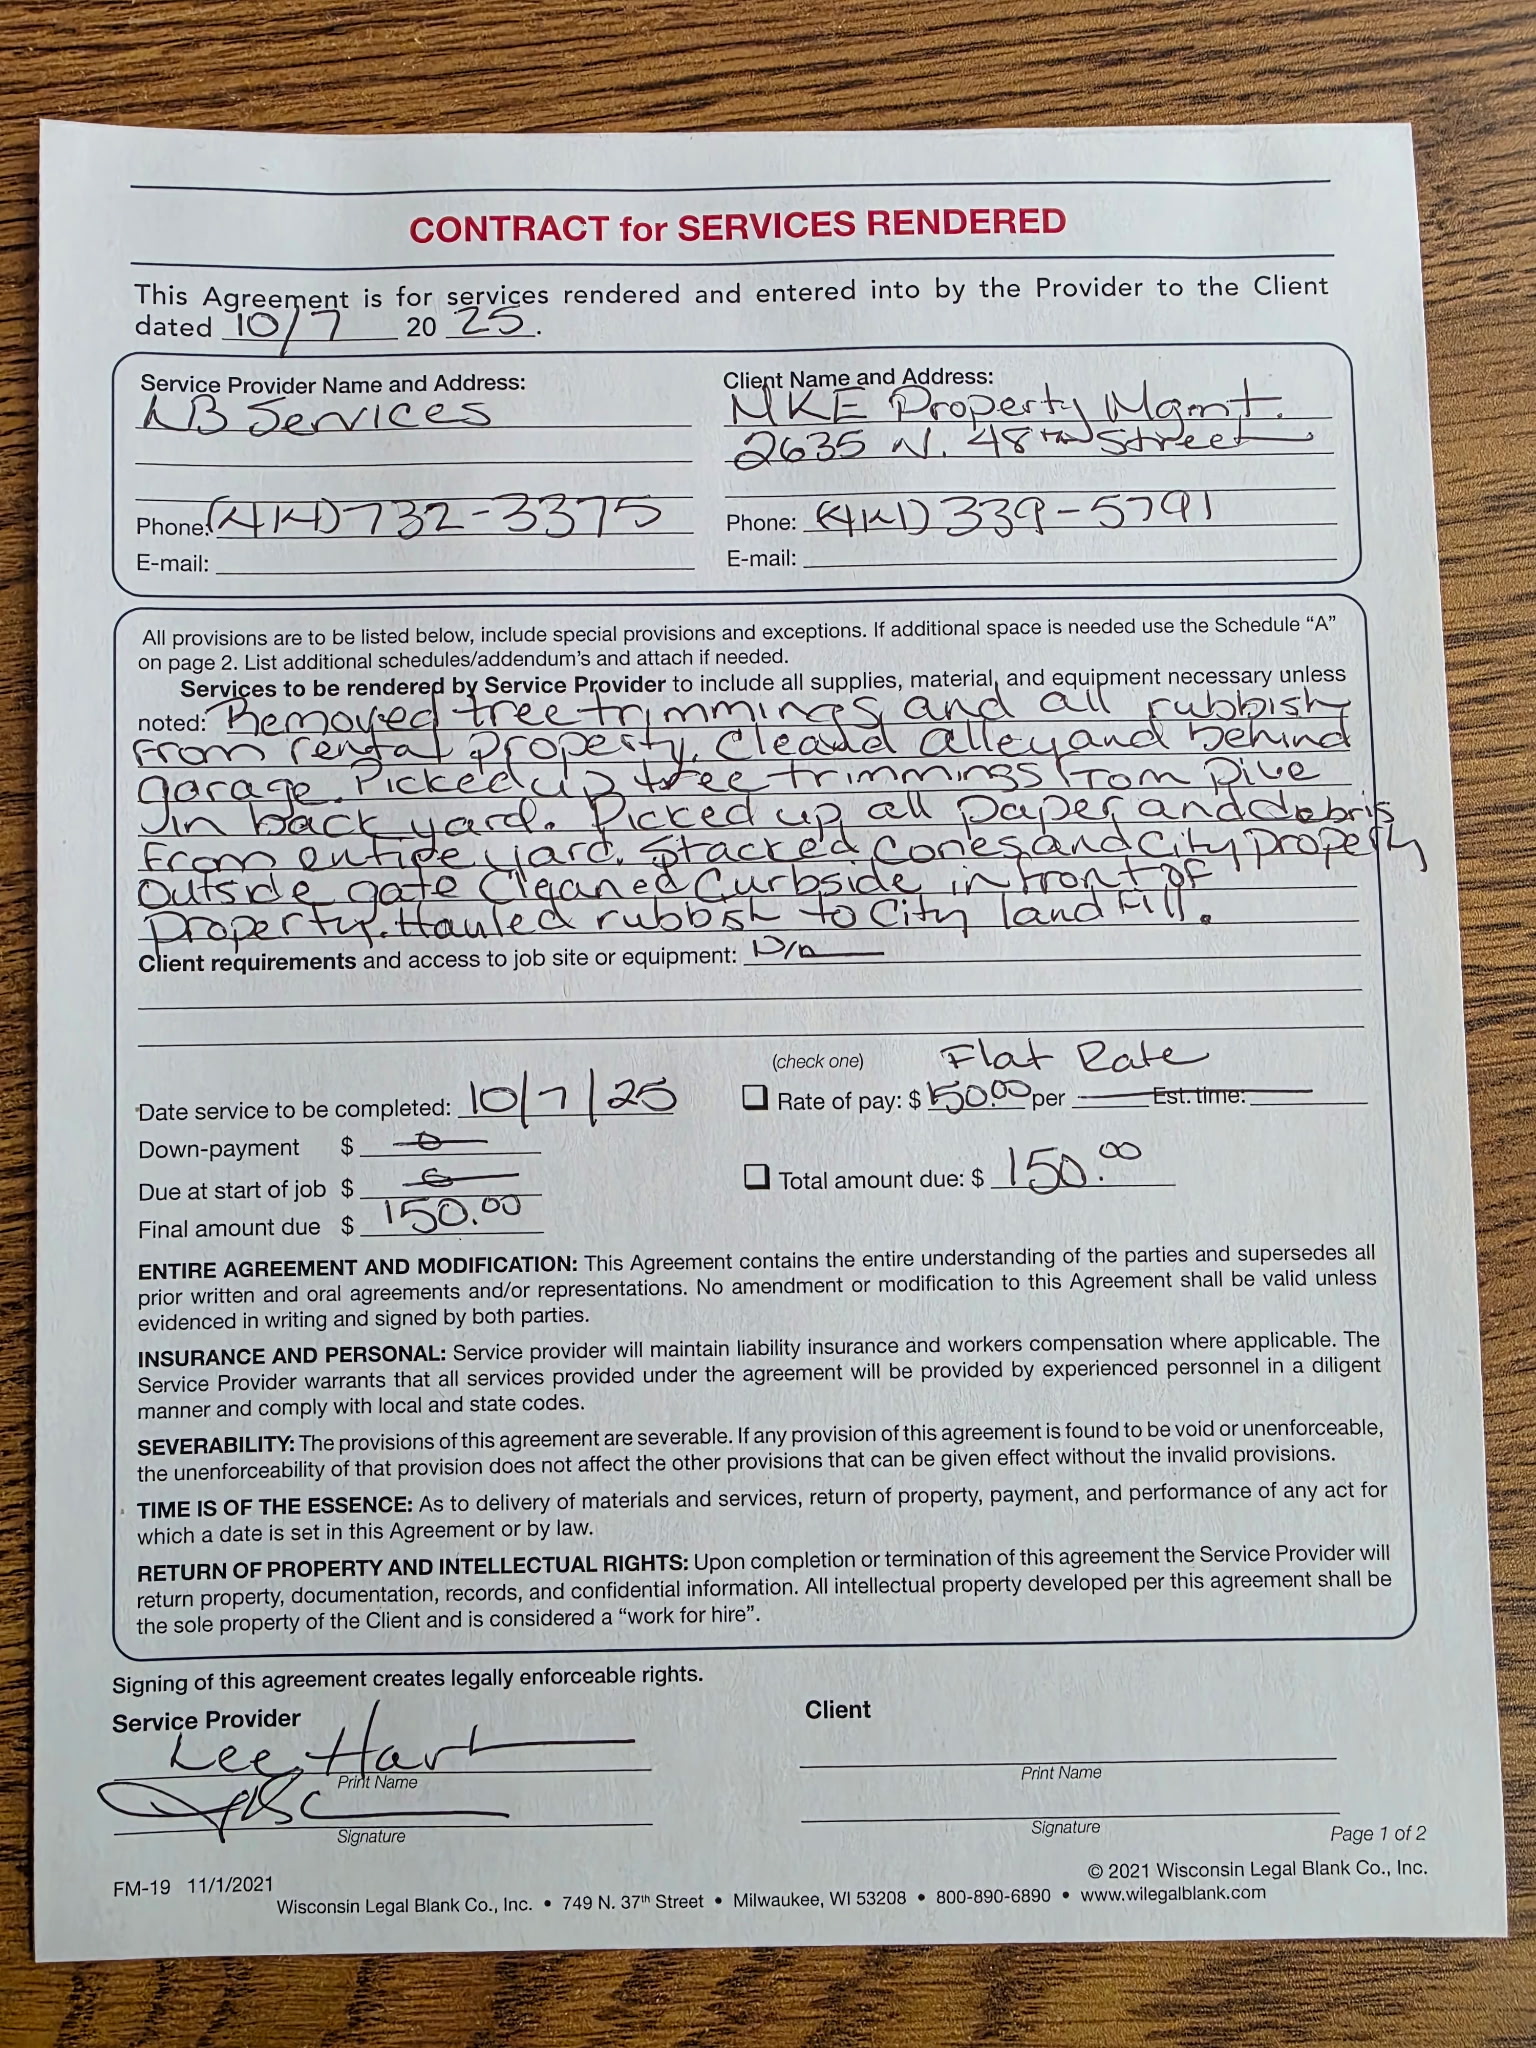 CONTRACT for SERVICES RENDERED
This Agreement is for services rendered and entered into by the Provider to the Client
dated 10/7 20 25.
Service Provider Name and Address:
LB Services
Phone: (414) 732-3375
E-mail:
Client Name and Address:
MKE Property Mgmt.
2635 N. 48th Street
Phone: (414) 339-5791
E-mail:
All provisions are to be listed below, include special provisions and exceptions. If additional space is needed use the Schedule “A”
on page 2. List additional schedules/addendum's and attach if needed.
Services to be rendered by Service Provider to include all supplies, material, and equipment necessary unless
noted: Removed tree trimmings and all rubbish
from rental property. Cleand alley and behind
garage. Picked up tree trimmings from pile
in back yard. Picked up all paper and debris
from entire yard. Stacked cones and City property
outside gate Cleaned Curbside in front of
property. Hauled rubbish to City landfill.
Client requirements and access to job site or equipment: N/A
(check one) Flat Rate
Date service to be completed: 10/7/25
Rate of pay: $ 150.00 per Est. time:
Down-payment $ 0
Due at start of job $ 0
Total amount due: $ 150.00
Final amount due $ 150.00
ENTIRE AGREEMENT AND MODIFICATION: This Agreement contains the entire understanding of the parties and supersedes all
prior written and oral agreements and/or representations. No amendment or modification to this Agreement shall be valid unless
evidenced in writing and signed by both parties.
INSURANCE AND PERSONAL: Service provider will maintain liability insurance and workers compensation where applicable. The
Service Provider warrants that all services provided under the agreement will be provided by experienced personnel in a diligent
manner and comply with local and state codes.
SEVERABILITY: The provisions of this agreement are severable. If any provision of this agreement is found to be void or unenforceable,
the unenforceability of that provision does not affect the other provisions that can be given effect without the invalid provisions.
TIME IS OF THE ESSENCE: As to delivery of materials and services, return of property, payment, and performance of any act for
which a date is set in this Agreement or by law.
RETURN OF PROPERTY AND INTELLECTUAL RIGHTS: Upon completion or termination of this agreement the Service Provider will
return property, documentation, records, and confidential information. All intellectual property developed per this agreement shall be
the sole property of the Client and is considered a “work for hire”.
Signing of this agreement creates legally enforceable rights.
Service Provider
Lee Hart
Print Name
Signature
Client
Print Name
Signature
Page 1 of 2
FM-19 11/1/2021
© 2021 Wisconsin Legal Blank Co., Inc.
Wisconsin Legal Blank Co., Inc. • 749 N. 37th Street • Milwaukee, WI 53208 • 800-890-6890 • www.wilegalblank.com